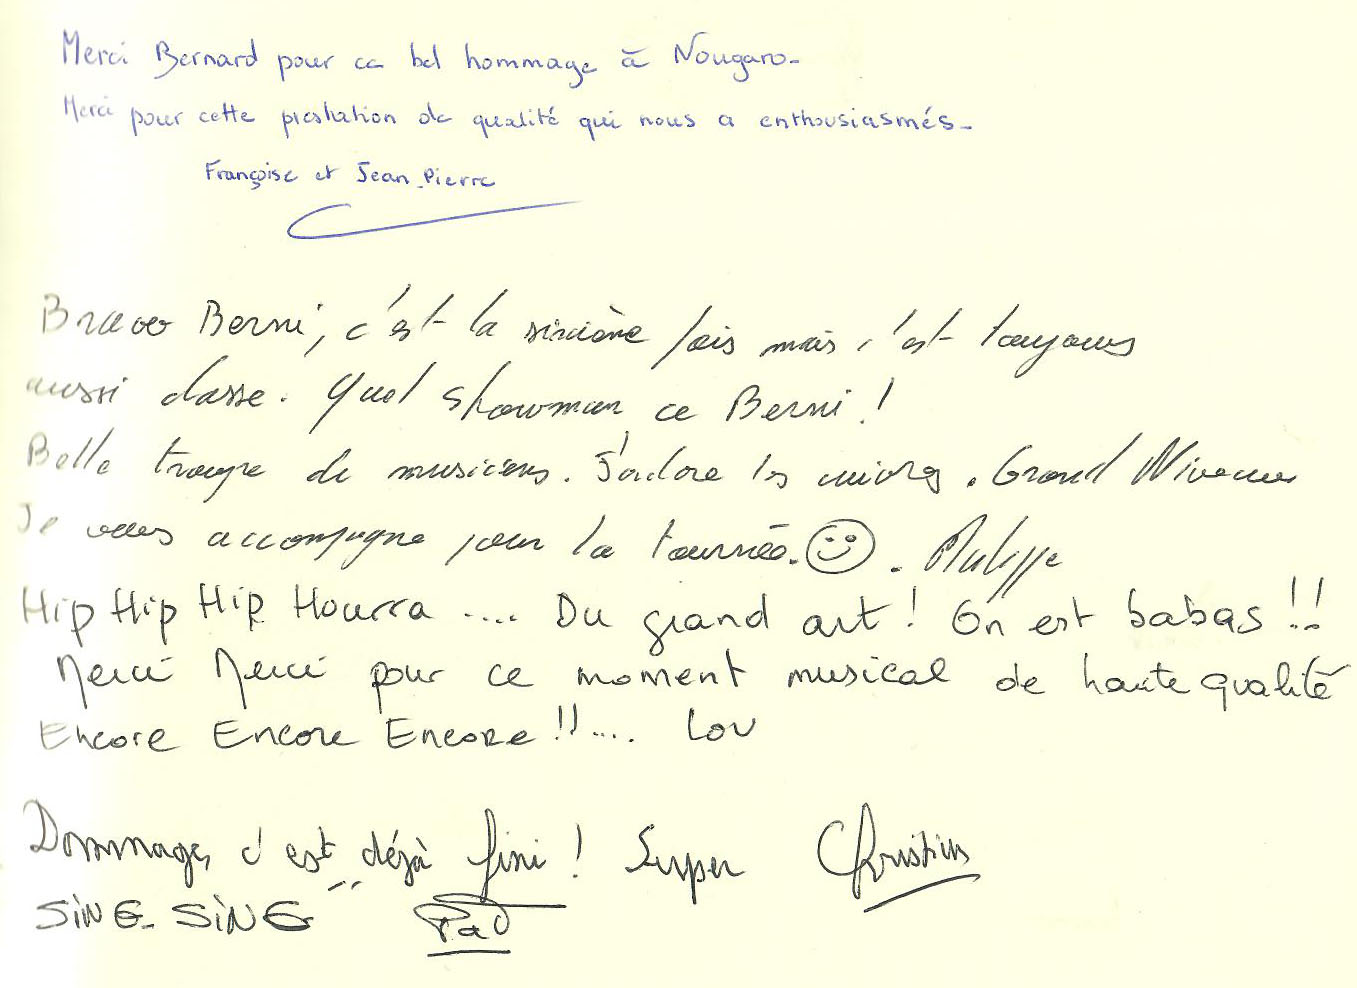 Merci Bernard pour ce bel hommage à Nougaro.
Merci pour cette prestation de qualité qui nous a enthousiasmés.
Françoise et Jean-Pierre
Bravo Berni, c'est la sixième fois mais c'est toujours
aussi classe. Quel showman ce Berni !
Belle troupe de musiciens. J'adore les cuivres. Grand Niveau
Je vous accompagne pour la tournée. ☺. Philippe
Hip Hip Hip Hourra .... Du grand art ! On est babas !!
Merci Merci pour ce moment musical de haute qualité
Encore Encore Encore !!.... Lou
Dommage, c'est déjà fini ! Super Christine
SiNG-SiNG